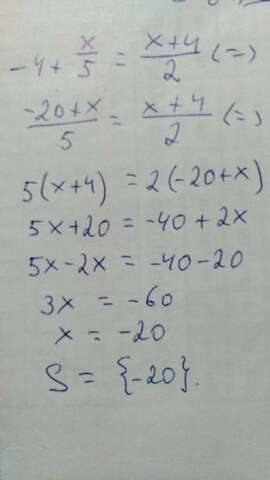 -4 + x/5 = (x+4)/2 (=)
(-20+x)/5 = (x+4)/2 (=)
5(x+4) = 2(-20+x)
5x+20 = -40+2x
5x-2x = -40-20
3x = -60
x = -20
S = {-20}.